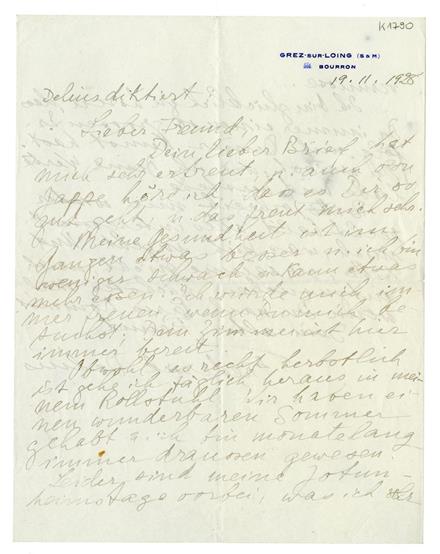 K1790
GREZ-SUR-LOING (S&M)
BOURRON
19.11.1925
Delius diktiert
Lieber Freund,
Dein lieber Brief hat
mich sehr erfreut, u. auch von
Jappe höre ich dass es Dir so
gut geht u. das freut mich sehr.
Meine Gesundheit ist im
Ganzen etwas besser u. ich bin
weniger schwach u. kann etwas
mehr essen. Ich würde mich im
mer freuen, wenn Du mich be
suchst, Dein Zimmer ist hier
immer bereit.
Obwohl es recht herbstlich
ist gehe ich täglich heraus in mei
nem Rollstuhl. Wir haben ei
nen wunderbaren Sommer
gehabt u. ich bin monatelang
immer draussen gewesen.
Leider sind meine Jotun-
heimstage vorbei, was ich